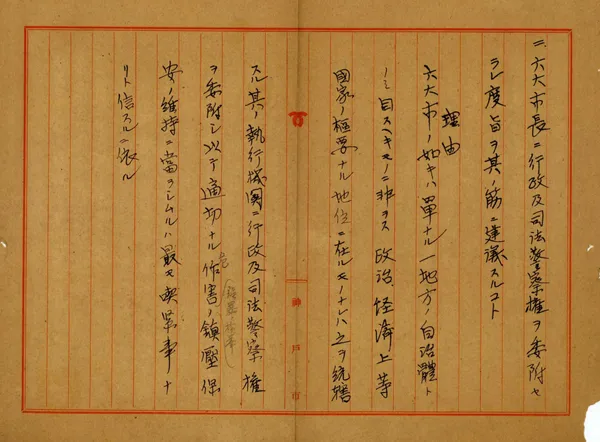 二、六大市長ニ行政及司法警察權ヲ委附セ
ラレ度旨ヲ其ノ筋ニ建議スルコト
理由
六大市ノ如キハ單ナル一地方ノ自治體ト
ノミ目スヘキモノニ非ラス政治、経済上等
國家ノ樞要ナル地位ニ在ルモノナレハ之ヲ統轄
スル其ノ執行機関ニ行政及司法警察權
ヲ委附シ以テ適切ナル危害ノ鎮壓保
安ノ維持ニ當ラシムルハ最モ喫緊事ナ
リト信スルニ依ル
神戸市